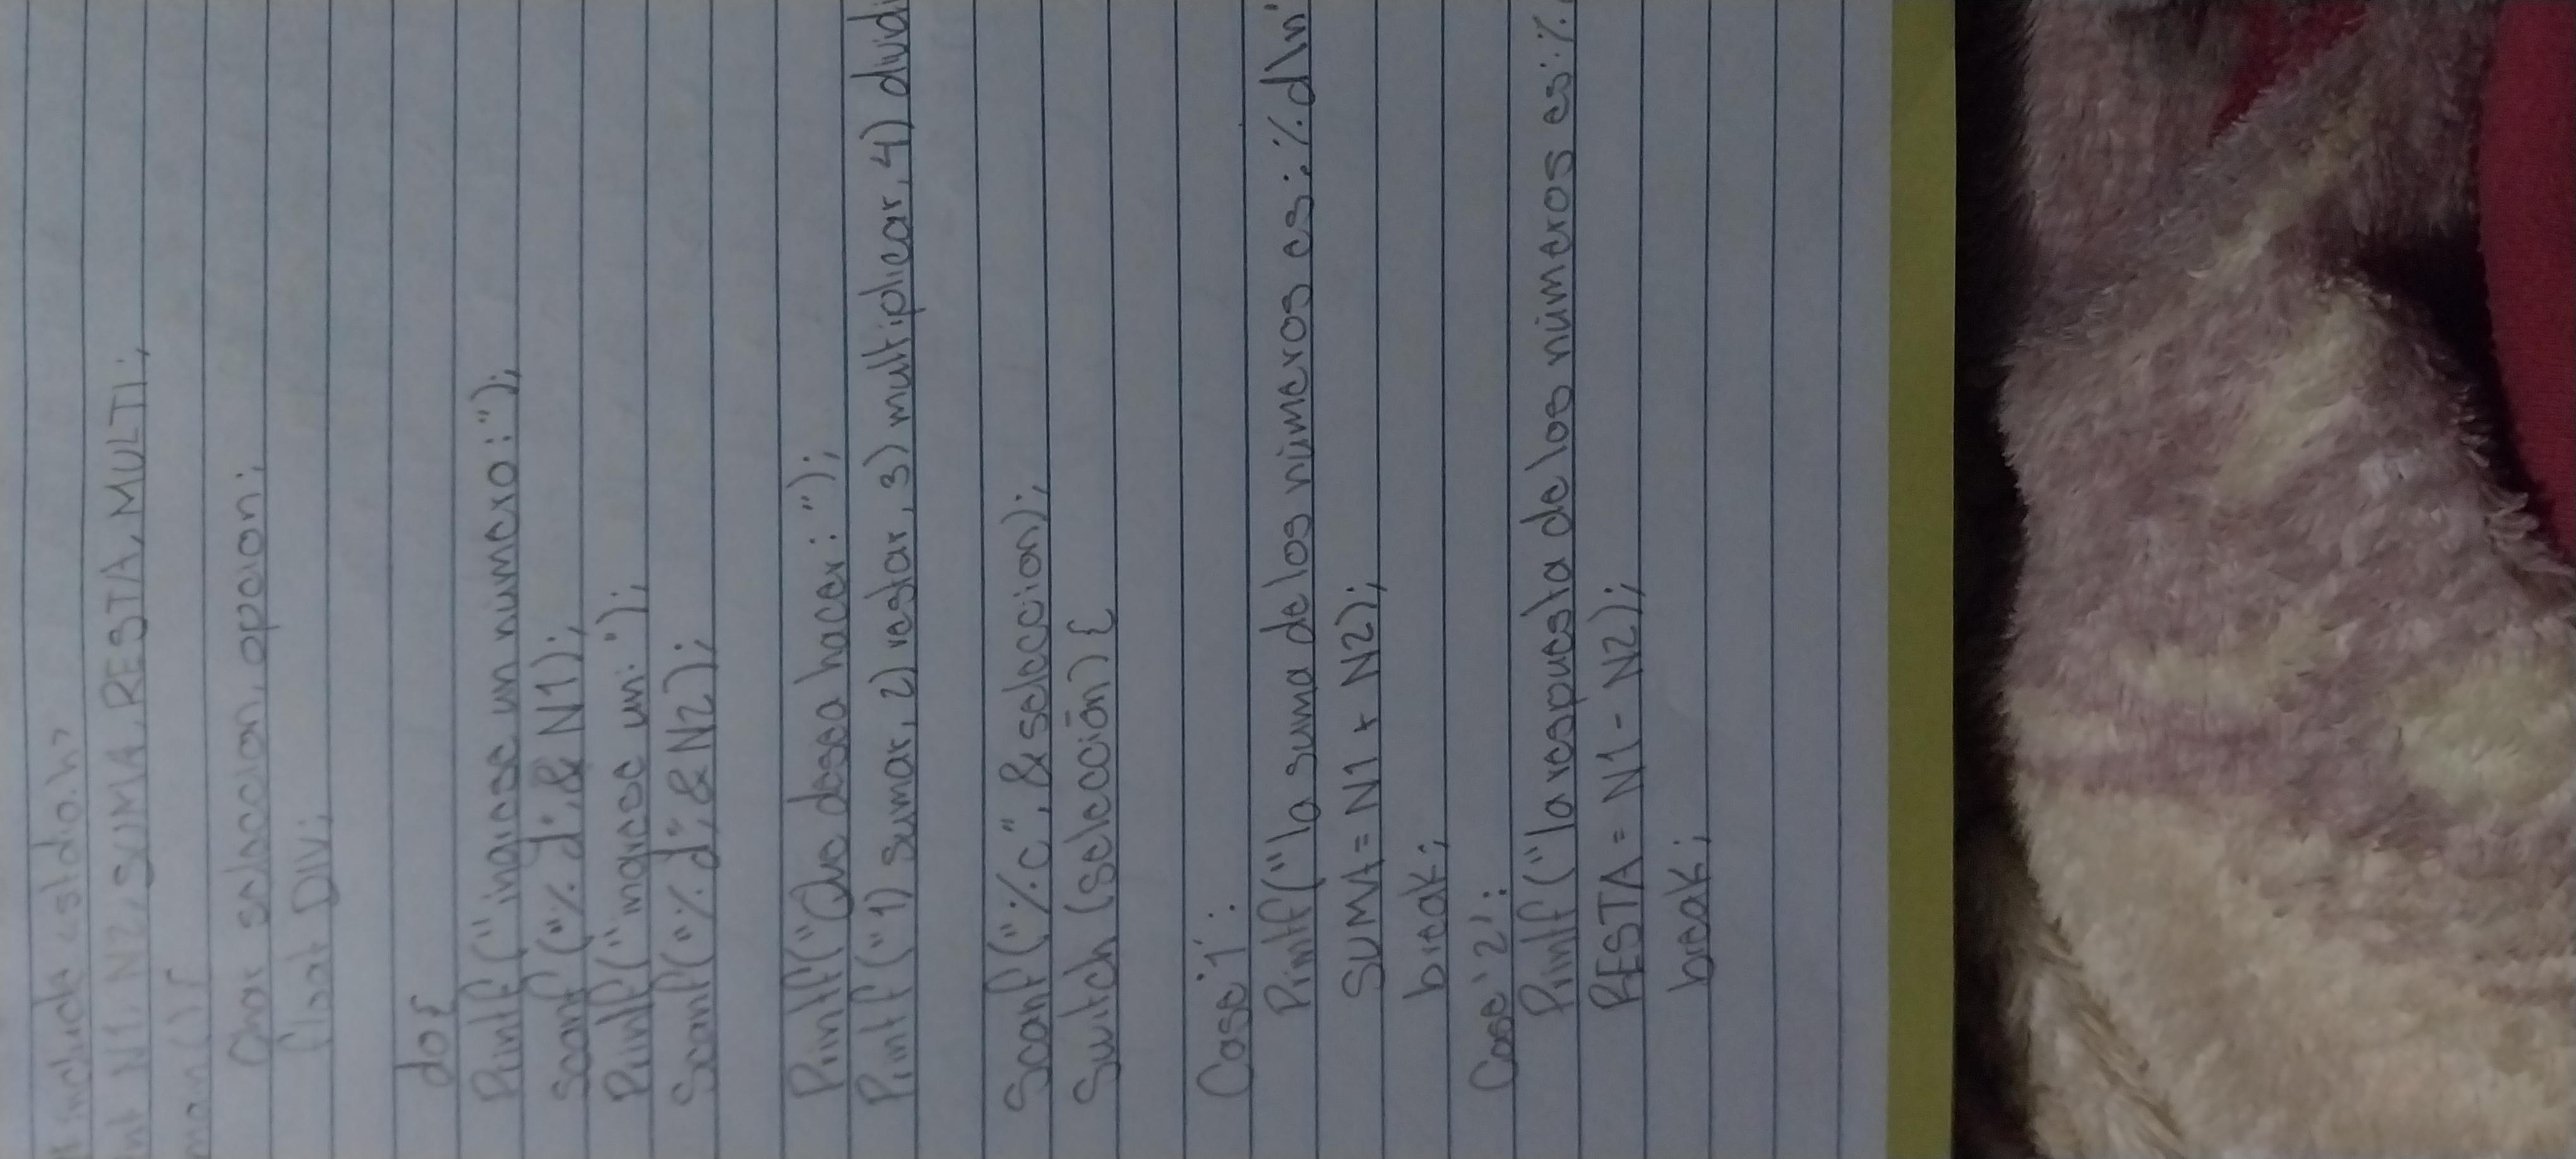 # include <stdio.h>
Int N1, N2, SUMA, RESTA, MULTI;
main(){
Char seleccion, opcion;
float DIV;
do{
Printf("ingrese un número:");
Scanf("%d", &N1);
Printf("ingrese un:");
Scanf("%d", &N2);
Printf("Que desea hacer:");
Printf("1) sumar, 2) restar, 3) multiplicar, 4) divid
Scanf("%c", &seleccion);
Switch (selección) {
Case '1':
Printf("la suma de los números es: %d\n"
SUMA = N1 + N2);
break;
Case '2':
Printf("la respuesta de los números es: %
RESTA = N1 - N2);
break;